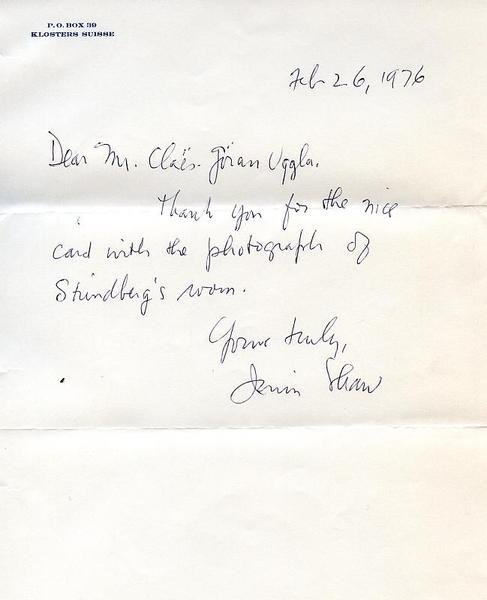 P. O. BOX 39
KLOSTERS SUISSE
Feb 26, 1976
Dear Mr. Claës-Göran Uggla.
Thank you for the nice
card with the photograph of
Strindberg's room.
Yours truly,
Irwin Shaw